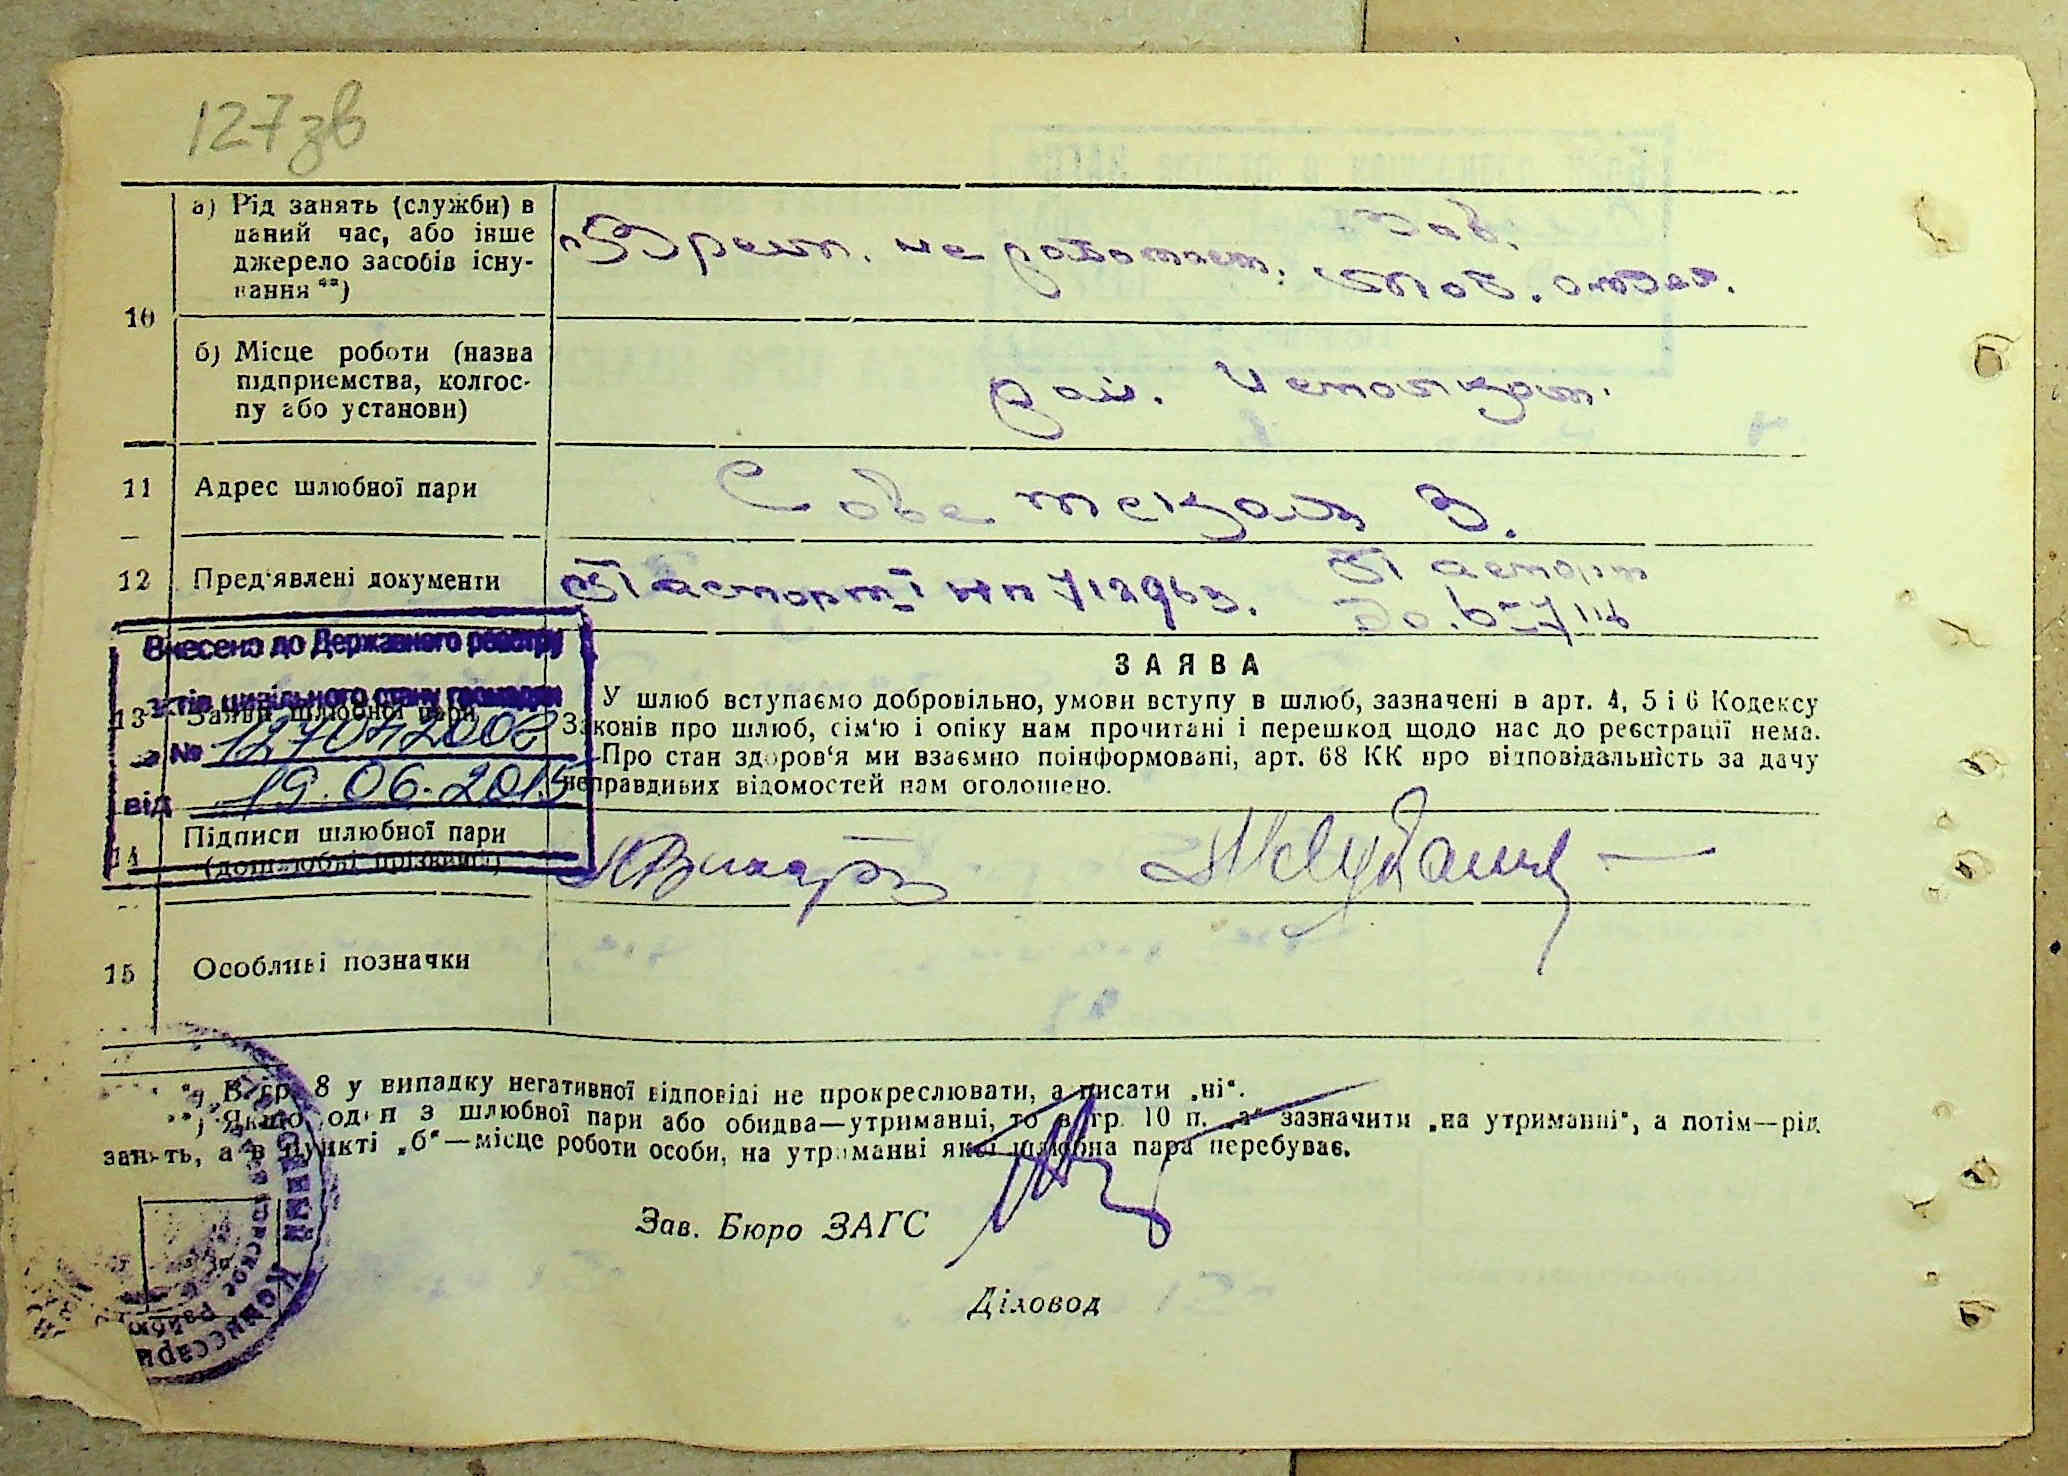 127зв
10
а) Рід занять (служби) в
даний час, або інше
джерело засобів існу-
вання **)
Врем. не работает. Зав.
моб. отдел.
б) Місце роботи (назва
підприємства, колгос-
пу або установи)
рай.
11 Адрес шлюбної пари
Советская 3.
12 Пред'явлені документи
Паспорт 712963. Паспорт
Внесено до Державного реєстру
актів цивільного стану громадян
за № 12704200
від 19.06.2015
13 Заяви шлюбної пари
ЗАЯВА
У шлюб вступаємо добровільно, умови вступу в шлюб, зазначені в арт. 4, 5 і 6 Кодексу
Законів про шлюб, сім'ю і опіку нам прочитані і перешкод щодо нас до реєстрації нема.
Про стан здоров'я ми взаємно поінформовані, арт. 68 КК про відповідальність за дачу
неправдивих відомостей нам оголошено.
14 Підписи шлюбної пари
(дошлюбні прізвища)
15 Особливі позначки
*) В гр. 8 у випадку негативної відповіді не прокреслювати, а писати „ні“.
**) Якщо один з шлюбної пари або обидва—утриманці, то в гр. 10 п. „а“ зазначити „на утриманні“, а потім—рід
занять, а в пункті „б“—місце роботи особи, на утриманні якої шлюбна пара перебуває.
Зав. Бюро ЗАГС
Діловод